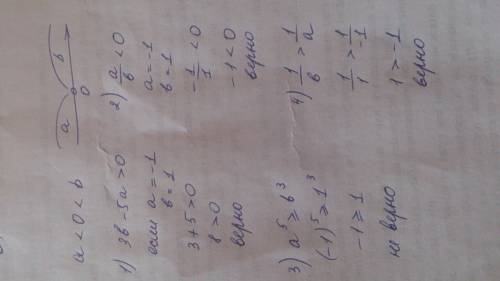 a < 0 < b
a 0 b
1) 3b - 5a > 0
если a = -1
b = 1
3 + 5 > 0
8 > 0
верно
2) a/b < 0
a = -1
b = 1
-1/1 < 0
-1 < 0
верно
3) a⁵ ≥ b³
(-1)⁵ ≥ 1³
-1 ≥ 1
не верно
4) 1/b > 1/a
1/1 > 1/-1
1 > -1
верно